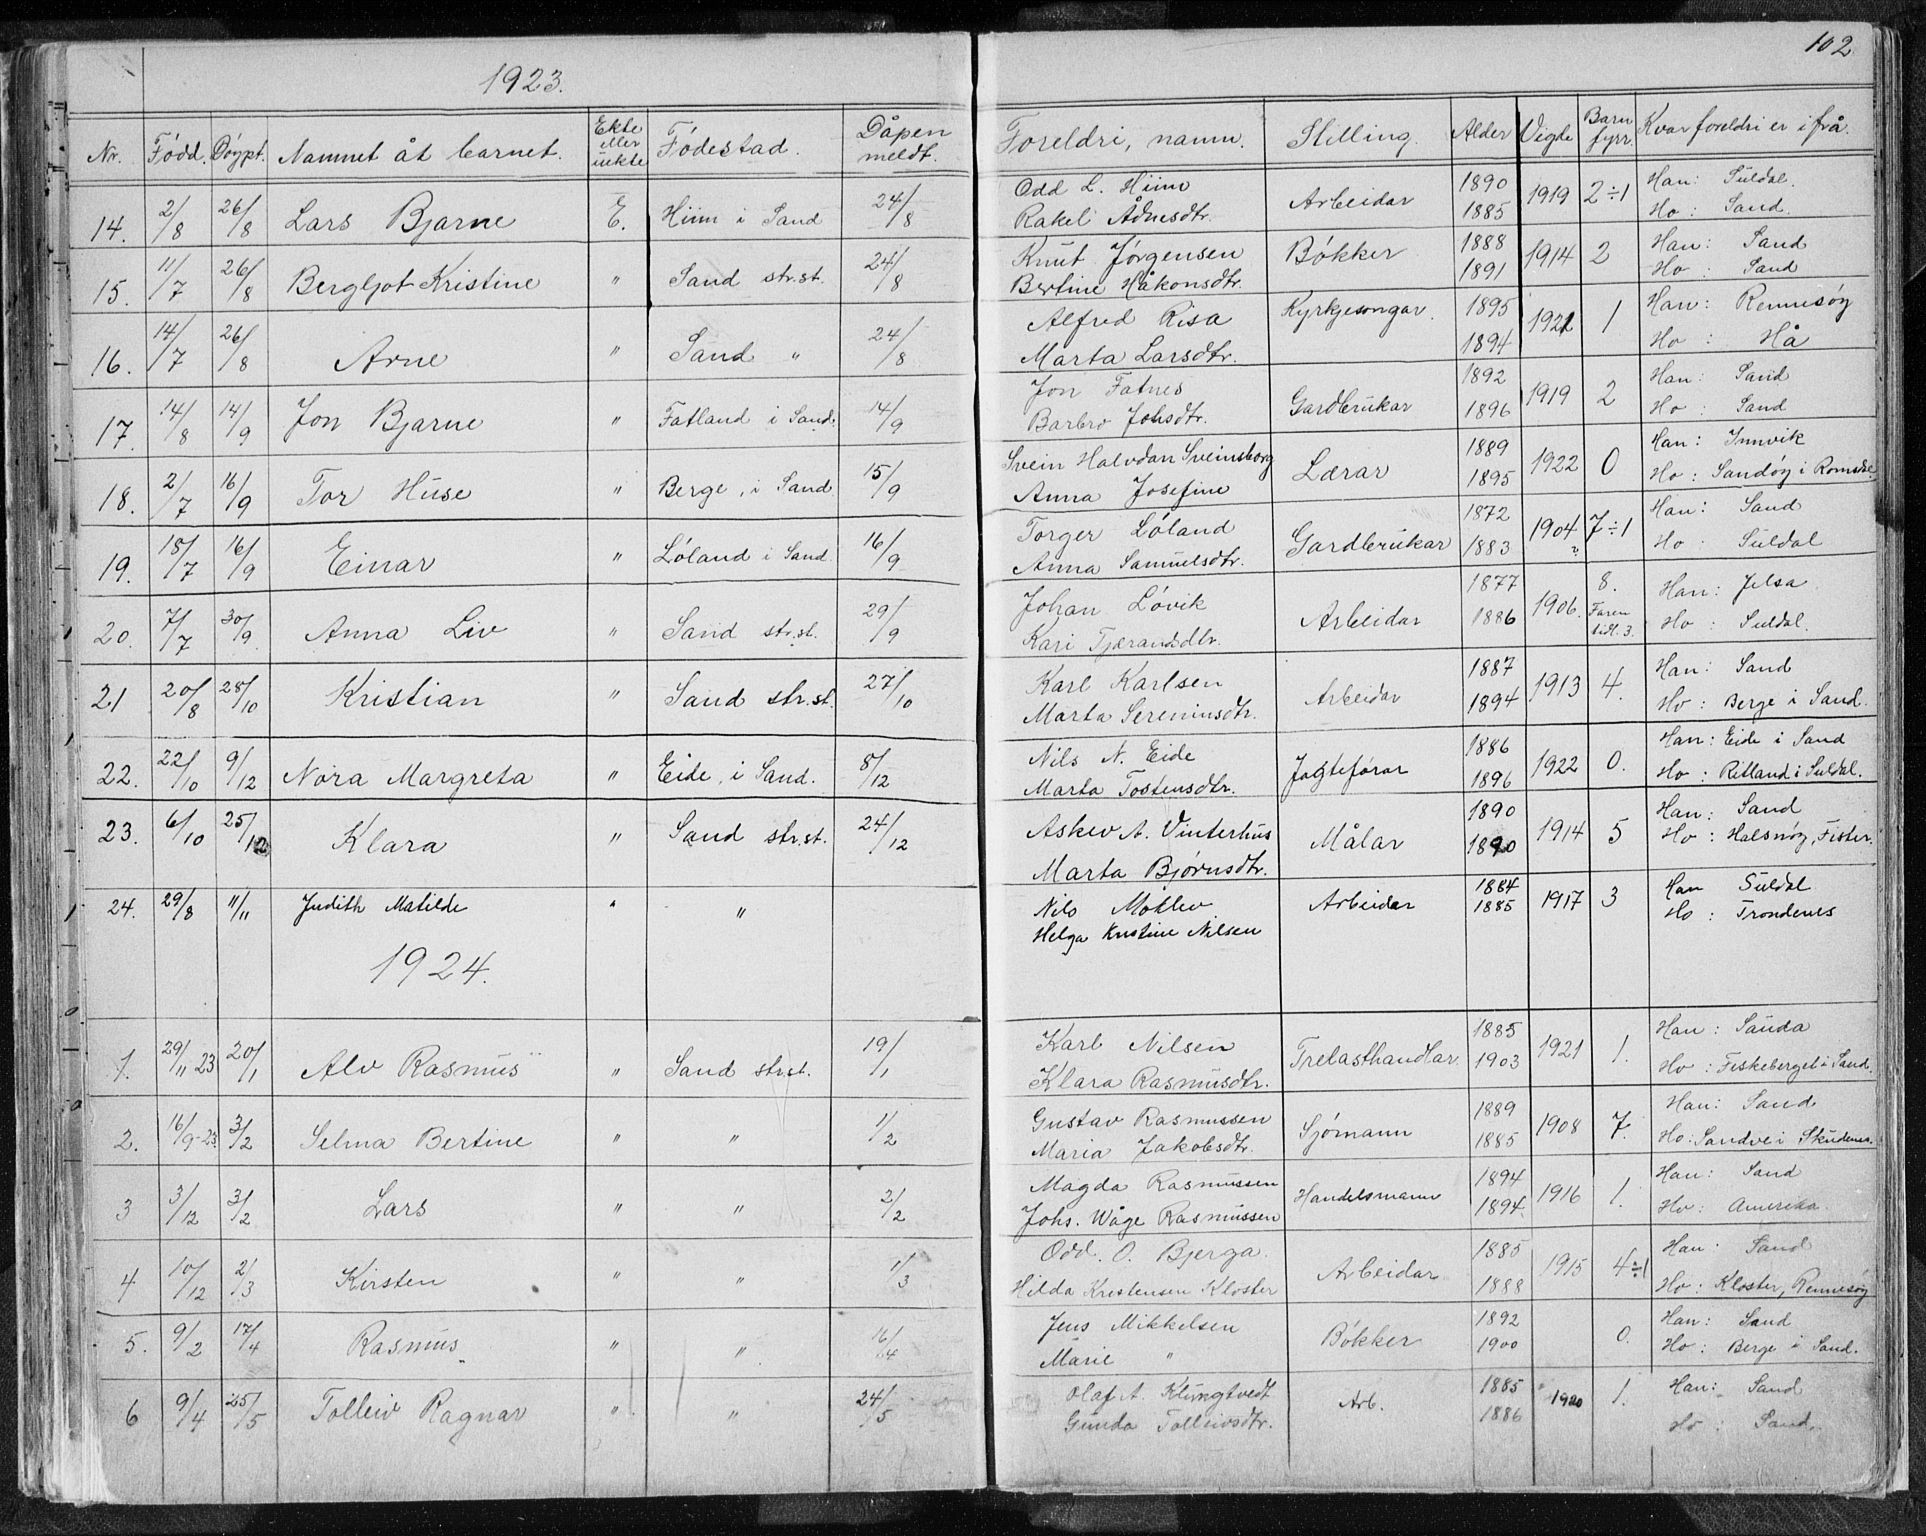 102
1923.
Nr. Född. Döypt. Namnet åt barnet. Ekte eller uekte Födestad. Dåpen meldt. Foreldri, namn. Stilling. Alder Vigde Barn fyrr. Kvar foreldri er ifrå.
14. 2/8 26/8 Lars Bjarne E. Hiim i Sand 24/8 Odd L. Hiim Arbeidar 1890 1919 2÷1 Han: Suldal.
Rakel Ådnesdtr. 1885 Ho: Sand.
15. 11/7 26/8 Bergljot Kristine " Sand str.st. 24/8 Knut Jørgensen Bøkker 1888 1914 2 Han: Sand
Bertine Håkonsdtr. 1891 Ho: Sand
16. 14/7 26/8 Arne " Sand " 24/8 Alfred Risa Kyrkjesongar. 1895 1921 1 Han: Rennesøy
Marta Larsdtr. 1894 Ho: Hå
17. 14/8 14/9 Jon Bjarne " Fatland i Sand. 14/9 Jon Fatnes Gardbrukar 1892 1919 2 Han: Sand
Barbro Johsdtr. 1896 Ho: Sand
18. 2/7 16/9 Tor Huse " Berge, i Sand 15/9 Svein Halvdan Sveinsborg Lærar 1889 1922 0 Han: Innvik
Anna Josefine 1895 Ho: Sandøy i Romsd.
19. 18/7 16/9 Einar " Løland i Sand 16/9 Torger Løland Gardbrukar 1872 1904 7÷1 Han: Sand
Anna Samuelsdtr. 1883 Ho: Suldal
20. 7/7 30/9 Anna Liv " Sand str.st. 29/9 Johan Løvik Arbeidar 1877 1906. 8. Han: Jelsa
Kari Tjerandsdtr. 1886 Faren tidl. 3. Ho: Suldal.
21 20/8 28/10 Kristian " Sand str.st. 27/10 Karl Karlsen Arbeidar 1887 1913 4. Han: Sand
Marta Sereniusdtr. 1894 Ho: Berge i Sand.
22. 22/10 9/12 Nora Margreta " Eide, i Sand. 8/12 Nils N. Eide Jagteförar 1886 1922 0. Han: Eide i Sand
Marta Tostensdtr. 1896 Ho: Ritland i Suldal.
23. 6/10 25/12 Klara " Sand str.st. 24/12 Askev A. Vinterhus Målar 1890 1914 5 Han: Sand
Marta Bjørnsdtr. 1890 Ho: Halsnøy, Fister.
24. 29/8 11/11 Judith Matilde " " Nils Moklev Arbeidar 1884 1917 3 Han Suldal
Helga Kristine Nilsen 1885 Ho: Trondenes
1924.
1. 29/11 23 20/1 Alv Rasmus " Sand str.st. 19/1 Karl Nilsen Trelasthandlar. 1885 1921 1. Han: Sauda
Klara Rasmusdtr. 1903 Ho: Fiskeberget i Sand.
2. 16/9-23. 3/2 Selma Bertine " " 1/2 Gustav Rasmussen Sjømann 1889 1908 7. Han: Sand
Maria Jakobsdtr. 1885 Ho: Sandve i Skudenes.
3 3/12 3/2 Lars " " 2/2 Magda Rasmussen Handelsmann 1894 1916 1. Han: Sand
Johs. Våge Rasmussen 1894. Ho: Amerika.
4 10/12 2/3 Kirsten " " 1/3 Odd. O. Bjerga. Arbeidar 1885 1915 4÷1 Han: Sand
Hilda Kristensen Kloster 1888 Ho: Kloster, Rennesøy
5. 9/2 17/4 Rasmus " " 16/4 Jens Mikkelsen Bøkker 1892 0. Han: Sand
Marie " 1900 Ho: Berge i Sand.
6 9/4 25/5 Tolleiv Ragnar " " 24/5 Olaf A. Klungtvedt Arb. 1885 1920 1. Han: Sand
Gunda Tolleivsdtr. 1886 Ho: Sand.